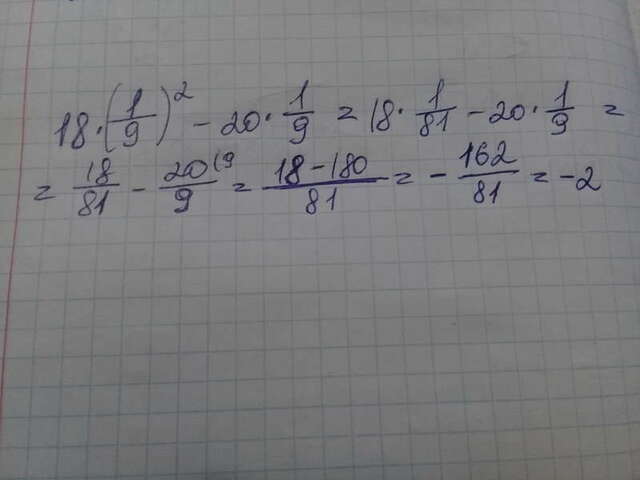 18·(1/9)² − 20·1/9 = 18·1/81 − 20·1/9 =
= 18/81 − 20/9 (9 = 18−180/81 = −162/81 = −2